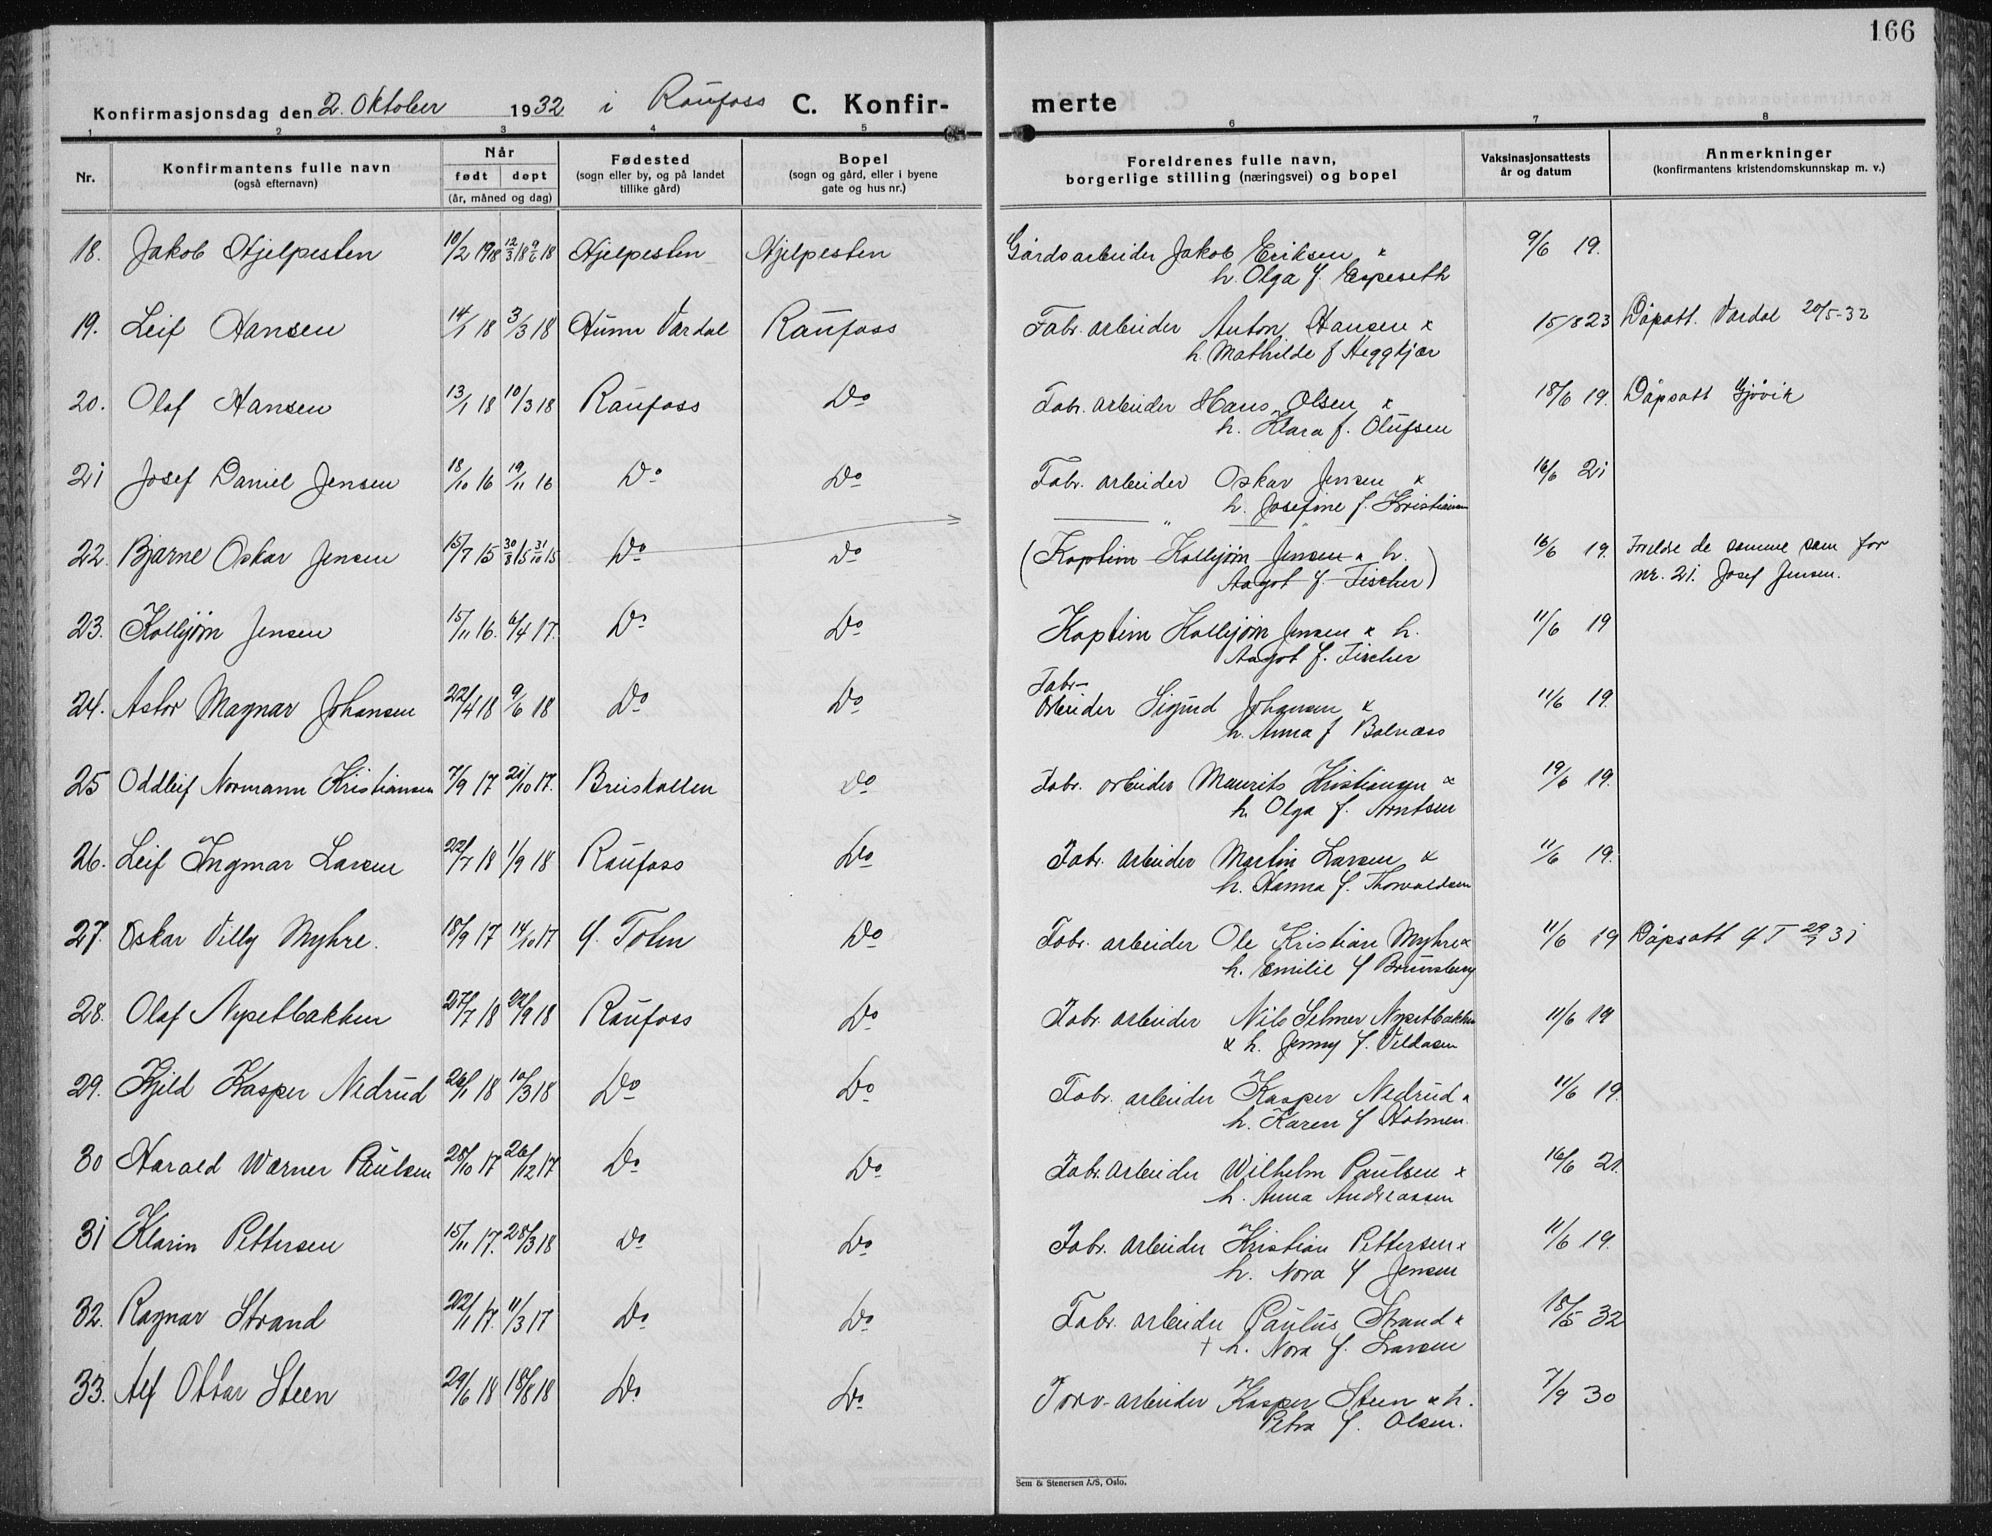 166
Konfirmasjonsdag den 2. Oktober 1932 i Raufoss C. Konfir-
merte
1 2 3 4 5 6 7 8
Nr. Konfirmantens fulle navn (også efternavn) Når født døpt (år, måned og dag) Fødested (sogn eller by, og på landet tillike gård) Bopel (sogn og gård, eller i byene gate og hus nr.) Foreldrenes fulle navn, borgerlige stilling (næringsvei) og bopel Vaksinasjonsattests år og datum Anmerkninger (konfirmantens kristendomskunnskap m. v.)
18. Jakob Hjelpesten 10/2 1918 12/3 18 9/6 18 Hjelpesten Hjelpesten Gårdsarbeider Jakob Eriksen x 9/6 19.
h. Olga f. Espeseth
19. Leif Hansen 14/1 18 3/3 18 Hunn Vardal Raufoss Fabr. arbeider Anton Hansen x 15/8 23 Dåpatt. Vardal 20/5-32
h. Mathilde f Heggkjær
20. Olaf Hansen 13/1 18 10/3 18 Raufoss Do Fabr. arbeider Hans Olsen x 18/6 19. Dåpsatt Gjøvik
h. Klara f. Olufsen
21 Josef Daniel Jensen 18/10 16 19/11 16 Do Do Fabr. arbeider Oskar Jensen x 16/6 21
h. Josefine f. Kristiansen
22. Bjarne Oskar Jensen 15/7 15 30/8 15 31/10 15 Do Do (Kaptein Kolbjørn Jensen x h. 16/6 19. Forelde de samme som for
Aagot f. Fischer) nr. 21. Josef Jensen.
23. Kolbjørn Jensen 15/11 16. 6/4 17. Do Do Kaptein Kolbjørn Jensen x h. 11/6 19
Aagot f. Fischer
24. Astor Magnar Johansen 22/4 18 9/6 18 Do Do Fabr- arbeider Sigurd Johansen x 11/6 19.
h. Anna f Balnæss
25 Oddleif Normann Kristiansen 7/9 17 21/10 17. Breiskallen Do Fabr. arbeider Maurits Kristiansen x 19/6 19.
h. Olga f. Arntsen
26. Leif Ingmar Larsen 22/7 18 1/9 18 Raufoss Do Fabr. arbeider Martin Larsen x 11/6 19.
h. Hanna f. Thorvaldsen
27. Oskar Villy Myhre. 18/9 17 14/10 17 Ø. Toten Do Fabr. arbeider Ole Kristian Myhre x 11/6 19 Dåpsatt Ø T 29/7 31
h. Emilie f Brunsberg
28. Olaf Nypetbakken 27/7 18 22/9 18 Raufoss Do Fabr. arbeider Nils Selmer Nypetbakken 11/6 19
x h. Jenny f. Veldasen
29. Kjeld Kasper Nedrud 26/1 18 10/3 18 Do Do Fabr. arbeider Kasper Nedrud x 11/6 19.
h. Karen f Holmen.
30 Harald Werner Paulsen 28/10 17 26/12 17 Do Do Fabr. arbeider Wilhelm Paulsen x 16/6 21.
h. Anna Andreassen
31 Klarin Pettersen 15/11 17. 28/3 18 Do Do Fabr. arbeider Kristian Pettersen x 11/6 19.
h. Nora f Jensen
32. Ragnar Strand 22/1 17. 11/3 17 Do Do Fabr. arbeider Paulus Strand x 18/5 32
+ h. Nora f. Larsen
33. Alf Ottar Steen 29/6 18 18/8 18 Do Do Torv-arbeider Kasper Steen x h. 7/9 30
Petra f. Olsen.
Sem & Stenersen A/S, Oslo.